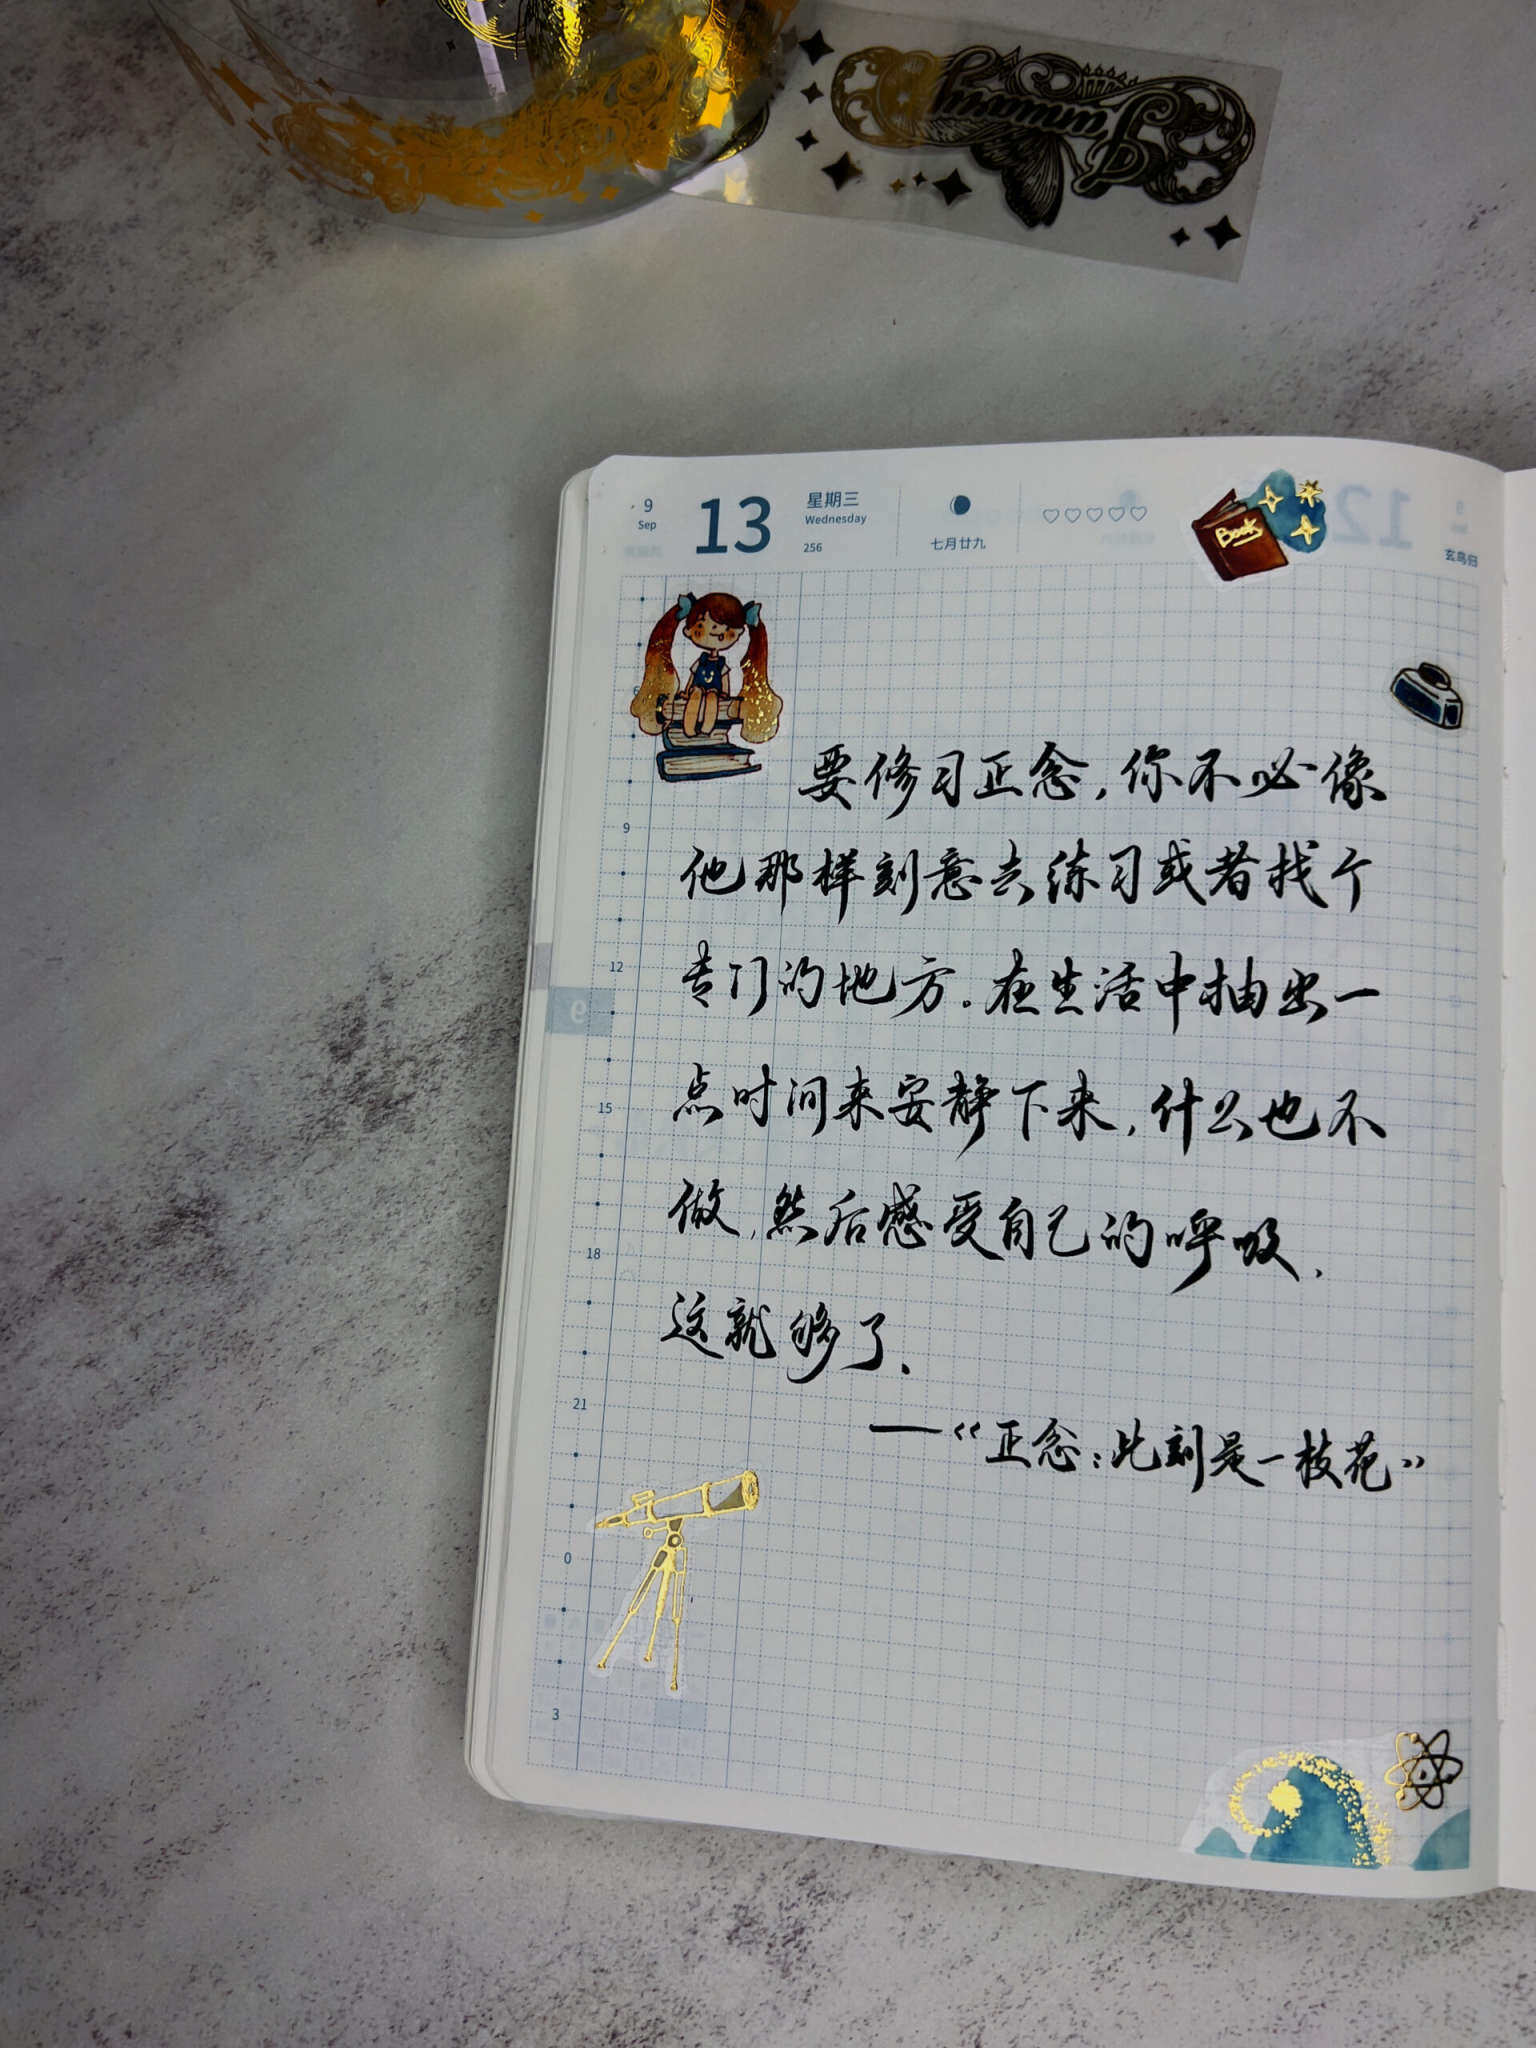 January
9
Sep
13
星期三
Wednesday
256
七月廿九
Book
12
玄鸟归
要修习正念,你不必像
他那样刻意去练习或者找个
专门的地方。在生活中抽出一
点时间来安静下来,什么也不
做,然后感受自己的呼吸,
这就够了、
——《正念:此刻是一枝花》
6
9
12
9
15
18
21
0
3